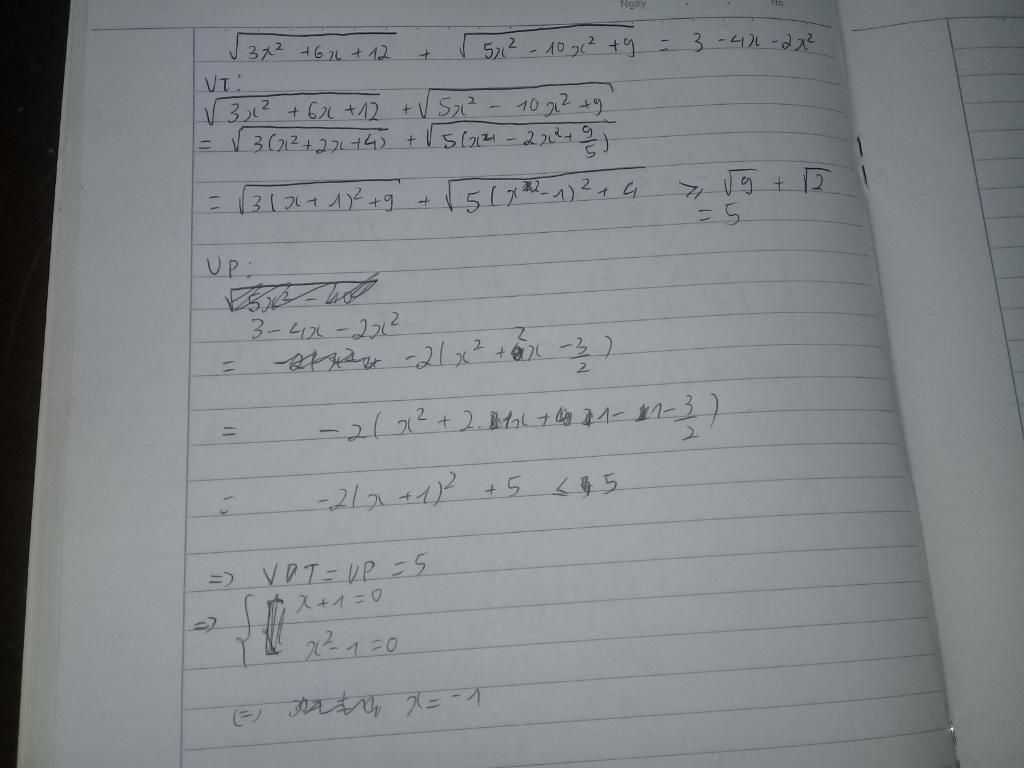 Ngày No.
√(3x² + 6x + 12) + √(5x² - 10x² + 9) = 3 - 4x - 2x²
VT:
√(3x² + 6x + 12) + √(5x² - 10x² + 9)
= √(3(x² + 2x + 4)) + √(5(x⁴ - 2x² + 9/5))
= √(3(x + 1)² + 9) + √(5(x² - 1)² + 4) ≥ √9 + √2
= 5
VP:
3 - 4x - 2x²
= -2(x² + 2x - 3/2)
= -2(x² + 2.1x + 1 - 1 - 3/2)
= -2(x + 1)² + 5 ≤ 5
=> VDT = VP = 5
=> { x + 1 = 0
x² - 1 = 0
(=) x = -1